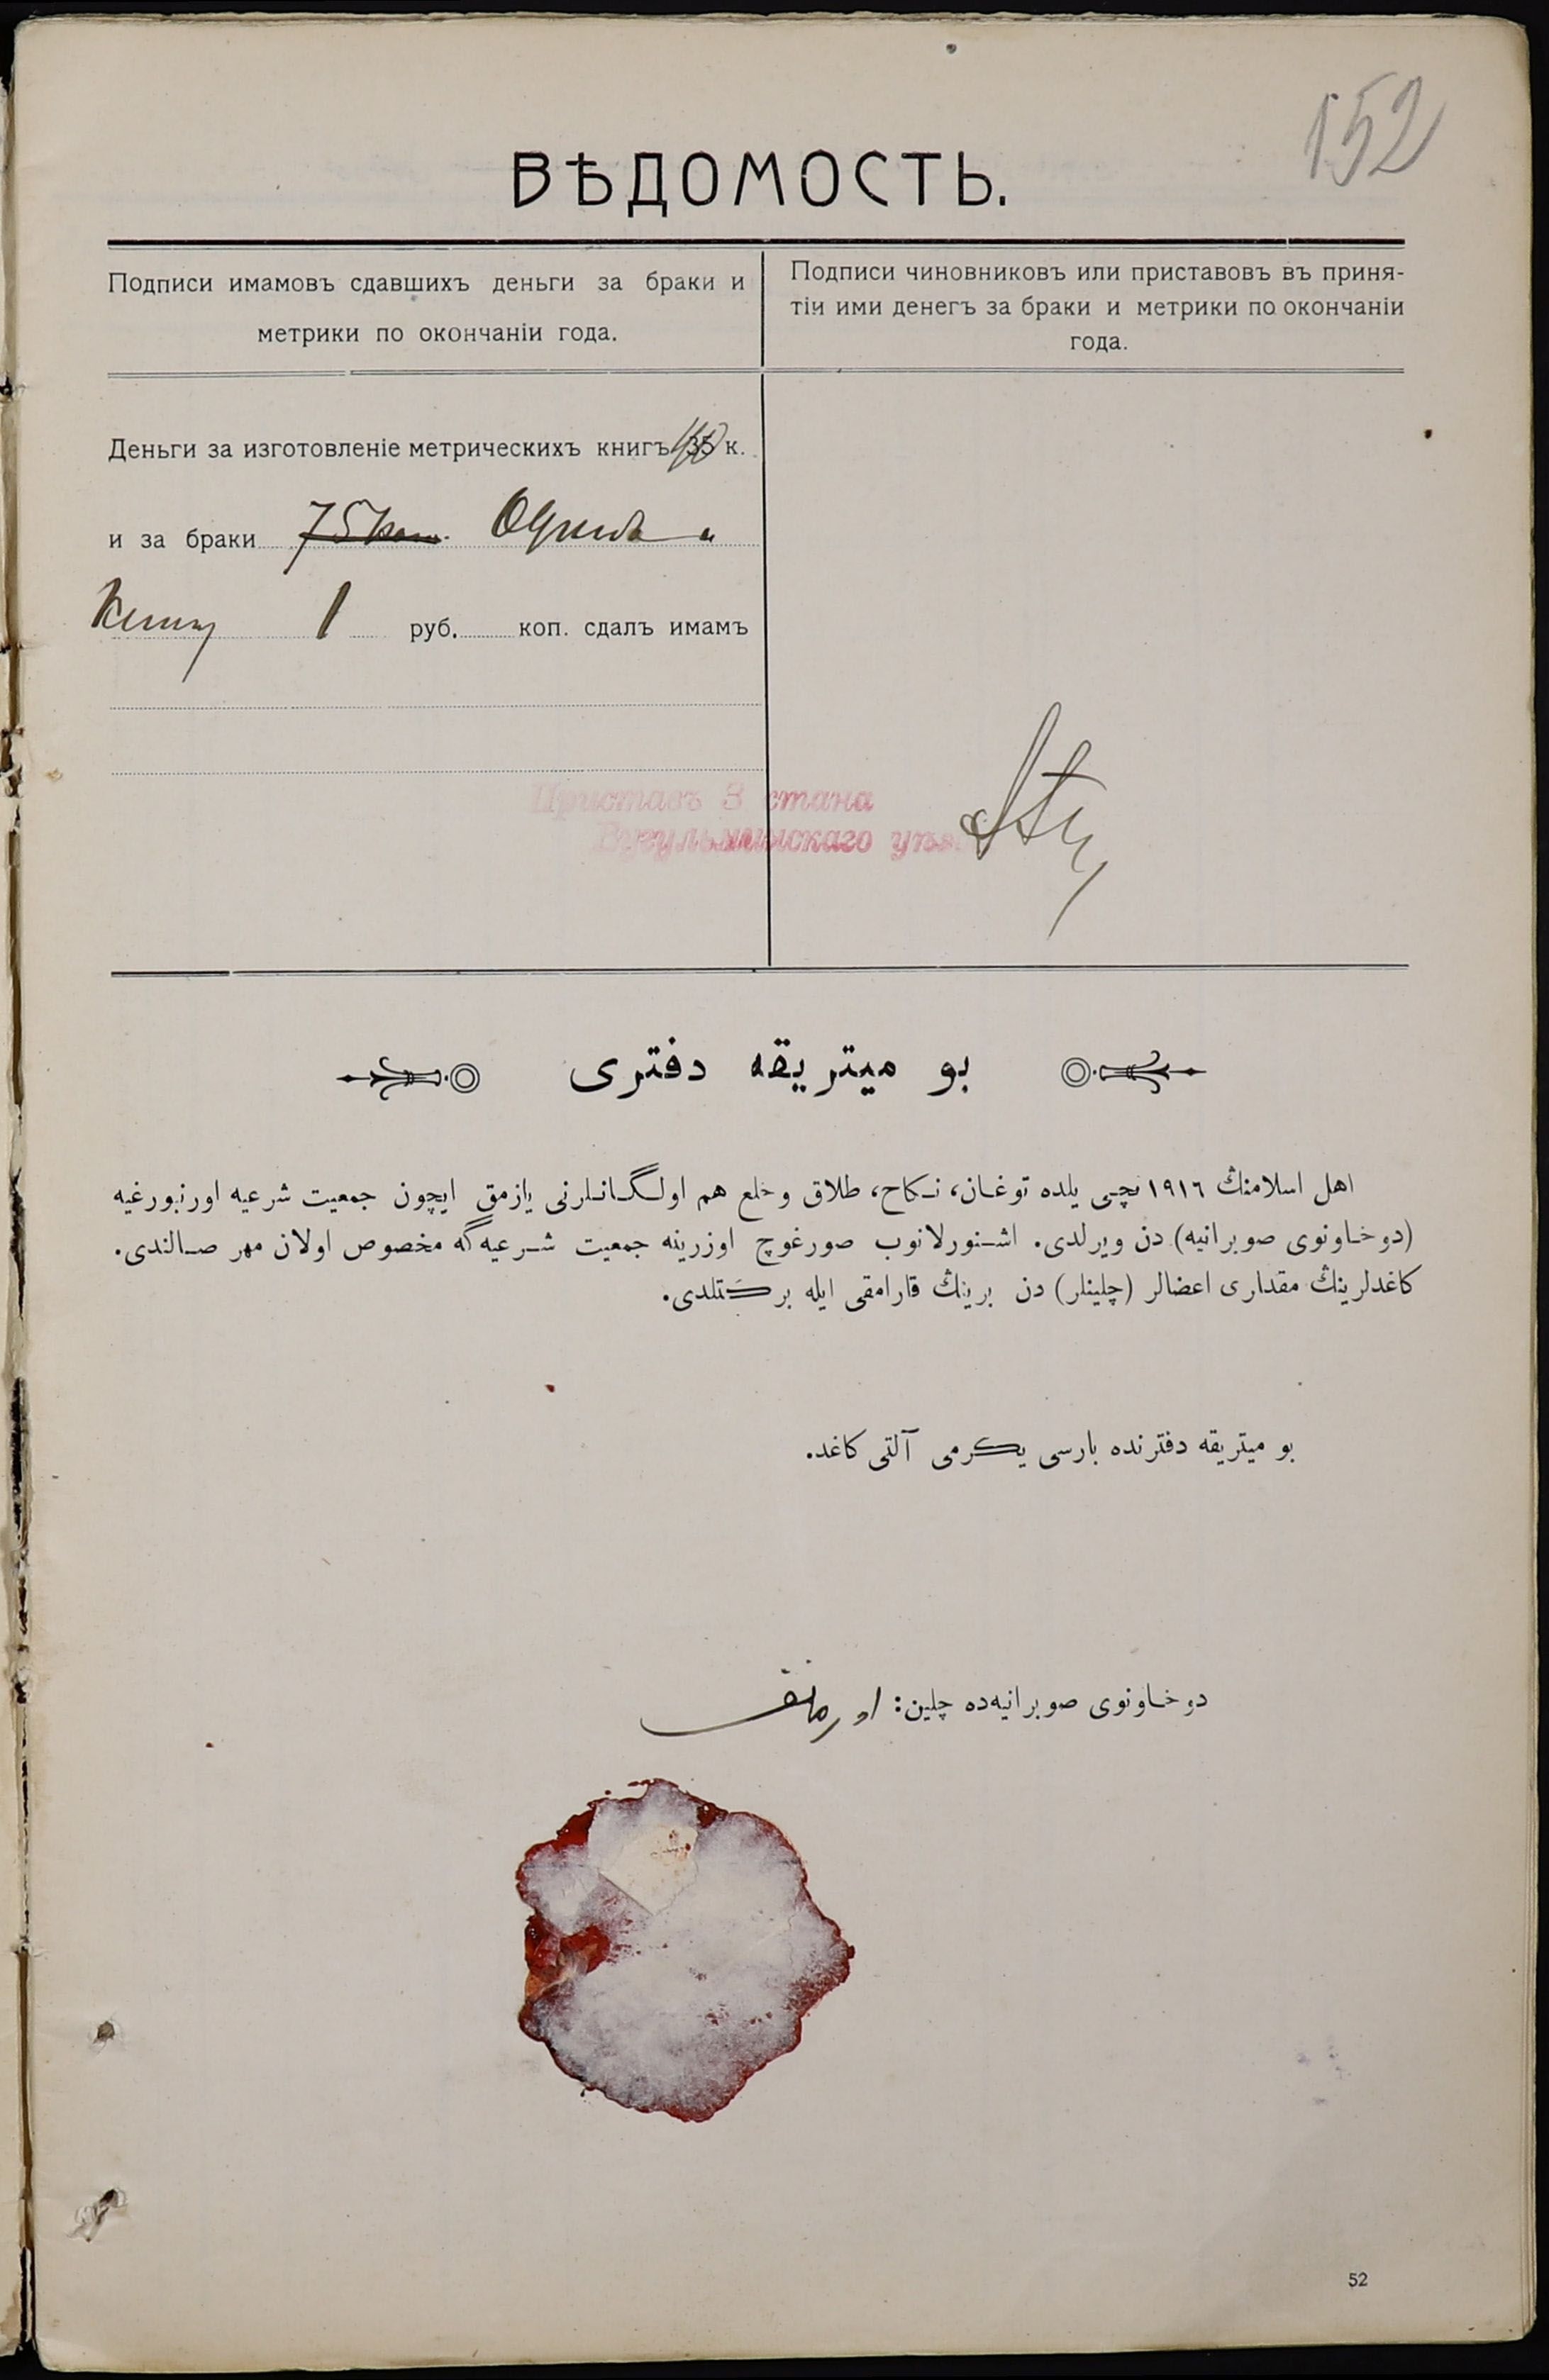 152
ВѢДОМОСТЬ.
Подписи имамовъ сдавшихъ деньги за браки и
метрики по окончаніи года.
Подписи чиновниковъ или приставовъ въ приня-
тіи ими денегъ за браки и метрики по окончаніи
года.
Деньги за изготовленіе метрическихъ книгъ 35 к.
и за браки 75 коп. Одинъ
1 руб. коп. сдалъ имамъ
Приставъ 3 стана
Бугульминскаго уѣз
بو ميتريقه دفترى
اهل اسلامنڭ ١٩١٦ نچى يلده توغان، نكاح، طلاق وخلع هم اولگانلرنى يازمق ايچون جمعيت شرعيه اورنبورغيه
(دوخاونوى صوبرانيه) دن ويرلدى. اشنورلانوب صورغوچ اوزرينه جمعيت شرعيه‌گه مخصوص اولان مهر صالندى.
كاغدلرينڭ مقدارى اعضالر (چلينلر) دن برينڭ قارامقى ايله بركتلدى.
بو ميتريقه دفترنده بارسى يكرمى آلتى كاغد.
دوخاونوى صوبرانيه‌ده چلين:
52